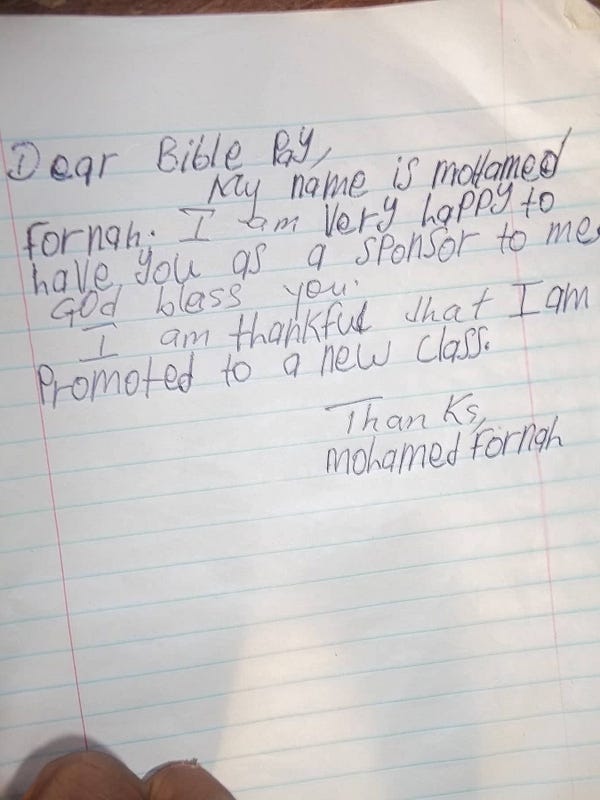 Dear Bible Pay,
My name is mohamed
Fornah. I am Very happy to
have you as a sponsor to me.
God bless you.
I am thankful that I am
Promoted to a new class.
Thanks,
mohamed Fornah